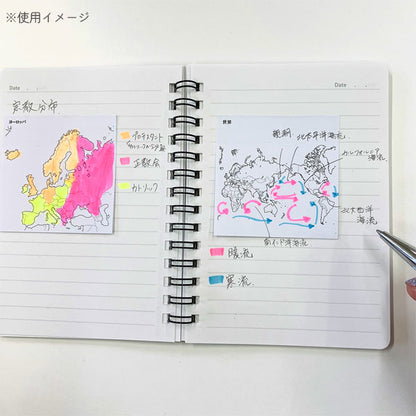 ※使用イメージ
Date
宗教分布
ヨーロッパ
プロテスタント
正教会
カトリック
Date
世界
親潮
北太平洋海流
カリフォルニア
海流
北大西洋
海流
南インド洋海流
暖流
寒流